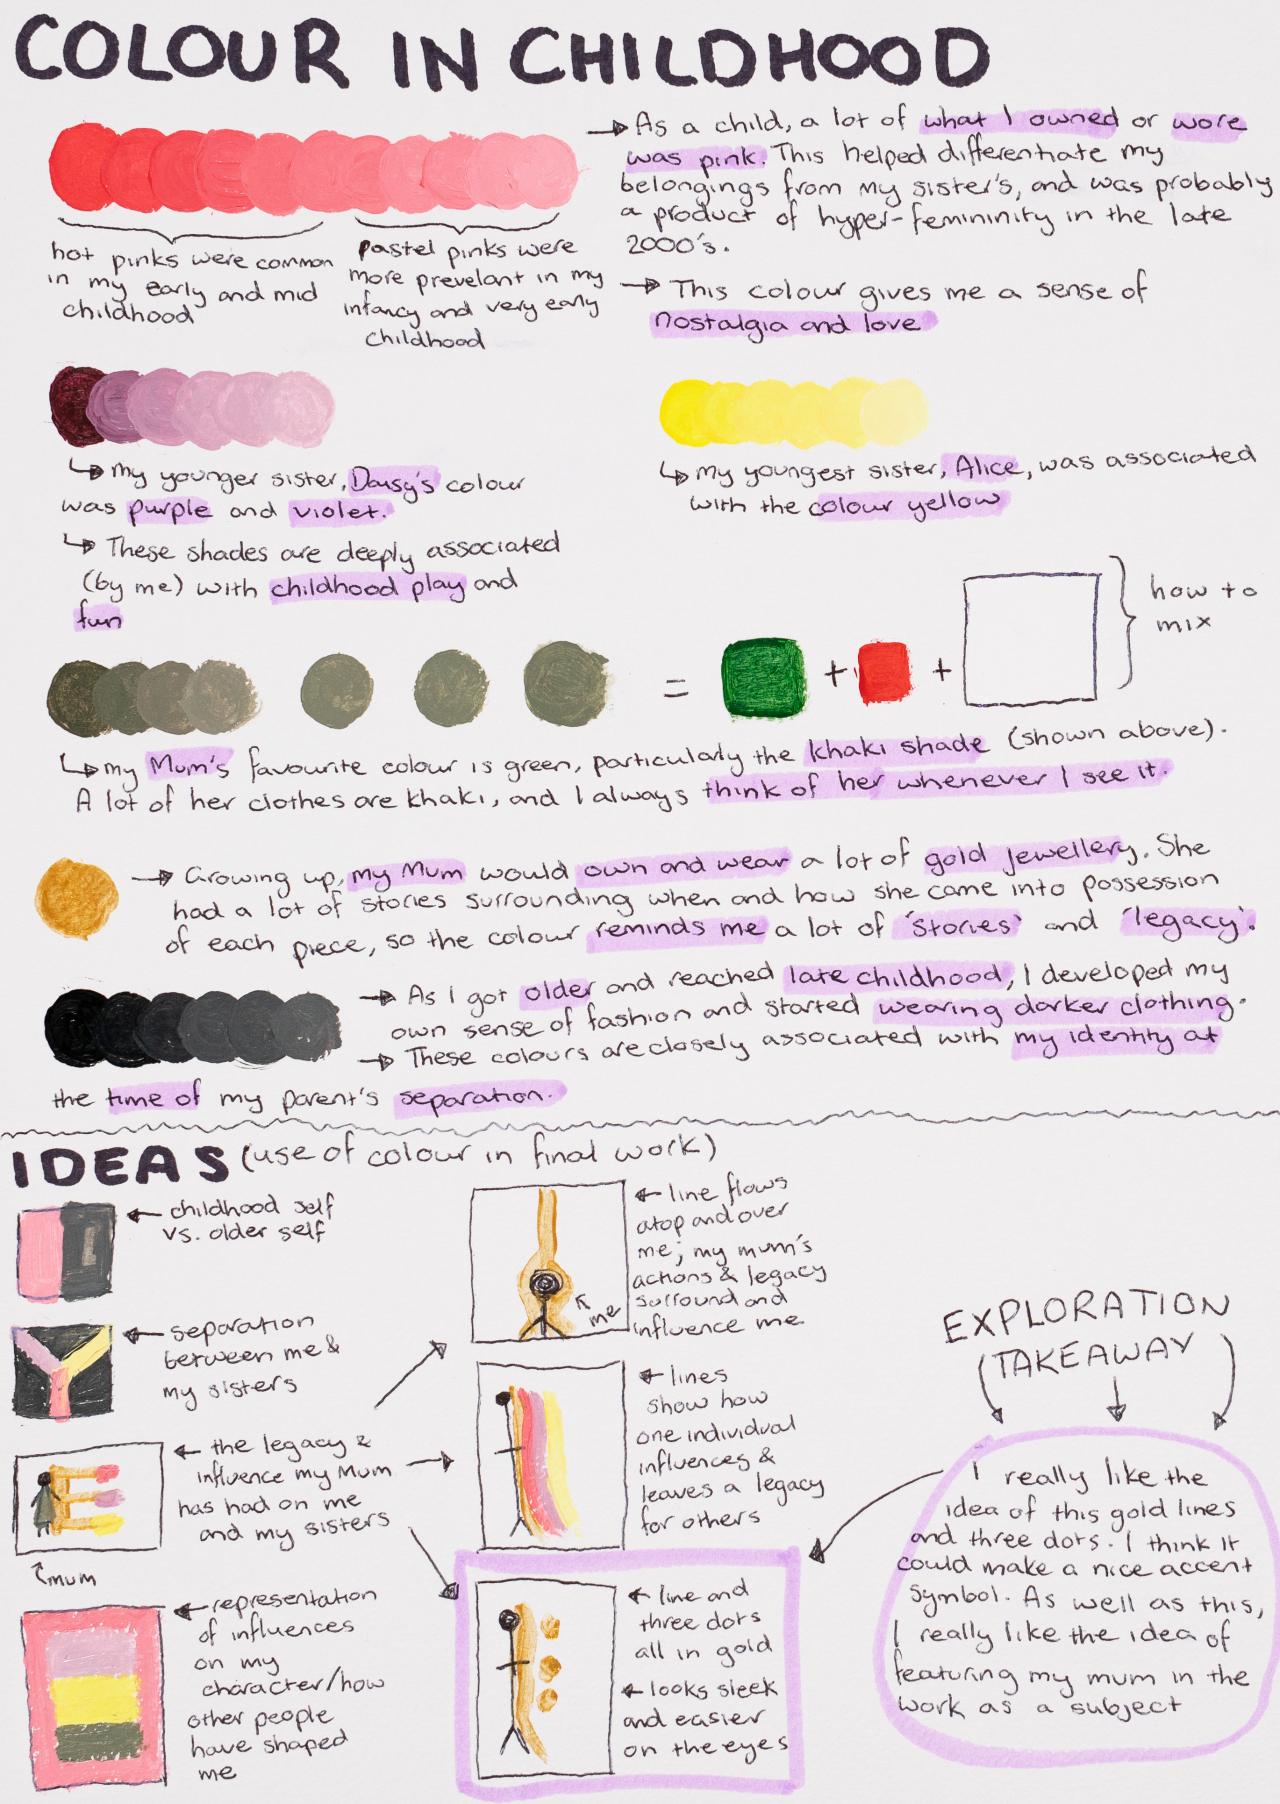 COLOUR IN CHILDHOOD
→ As a child, a lot of what I owned or wore
was pink. This helped differentiate my
belongings from my sister's, and was probably
a product of hyper-femininity in the late
2000's.
→ This colour gives me a sense of
nostalgia and love
hot pinks were common
in my early and mid
childhood
pastel pinks were
more prevelant in my
infancy and very early
childhood
↳ my younger sister, Daisy's colour
was purple and violet.
↳ These shades are deeply associated
(by me) with childhood play and
fun
↳ my youngest sister, Alice, was associated
with the colour yellow
= + +
how to
mix
↳ my Mum's favourite colour is green, particularly the khaki shade (shown above).
A lot of her clothes are khaki, and I always think of her whenever I see it.
→ Growing up, my Mum would own and wear a lot of gold jewellery. She
had a lot of stories surrounding when and how she came into possession
of each piece, so the colour reminds me a lot of 'stories' and 'legacy'.
→ As I got older and reached late childhood, I developed my
own sense of fashion and started wearing darker clothing.
→ These colours are closely associated with my identity at
the time of my parent's separation.
IDEAS (use of colour in final work)
← childhood self
vs. older self
← separation
between me &
my sisters
← the legacy &
influence my Mum
has had on me
and my sisters
mum
← representation
of influences
on my
character/how
other people
have shaped
me
← line flows
atop and over
me; my mum's
actions & legacy
surround and
influence me
me
← lines
show how
one individual
influences &
leaves a legacy
for others
← line and
three dots
all in gold
← looks sleek
and easier
on the eyes
EXPLORATION
TAKEAWAY
I really like the
idea of this gold lines
and three dots. I think it
could make a nice accent
symbol. As well as this,
I really like the idea of
featuring my mum in the
work as a subject